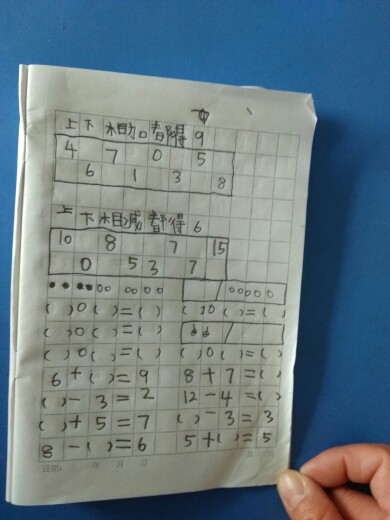 上下相加都得9
4 7 0 5
6 1 3 8
上下相减都得6
10 8 7 15
0 5 3 7
( )○( )=( ) ( )○( )=( )
( )○( )=( )
( )○( )=( ) ( )○( )=( )
6+( )=9 8+7=( )
( )-3=2 12-4=( )
( )+5=7 ( )-3=3
8-( )=6 5+( )=5
日期: 年 月 日